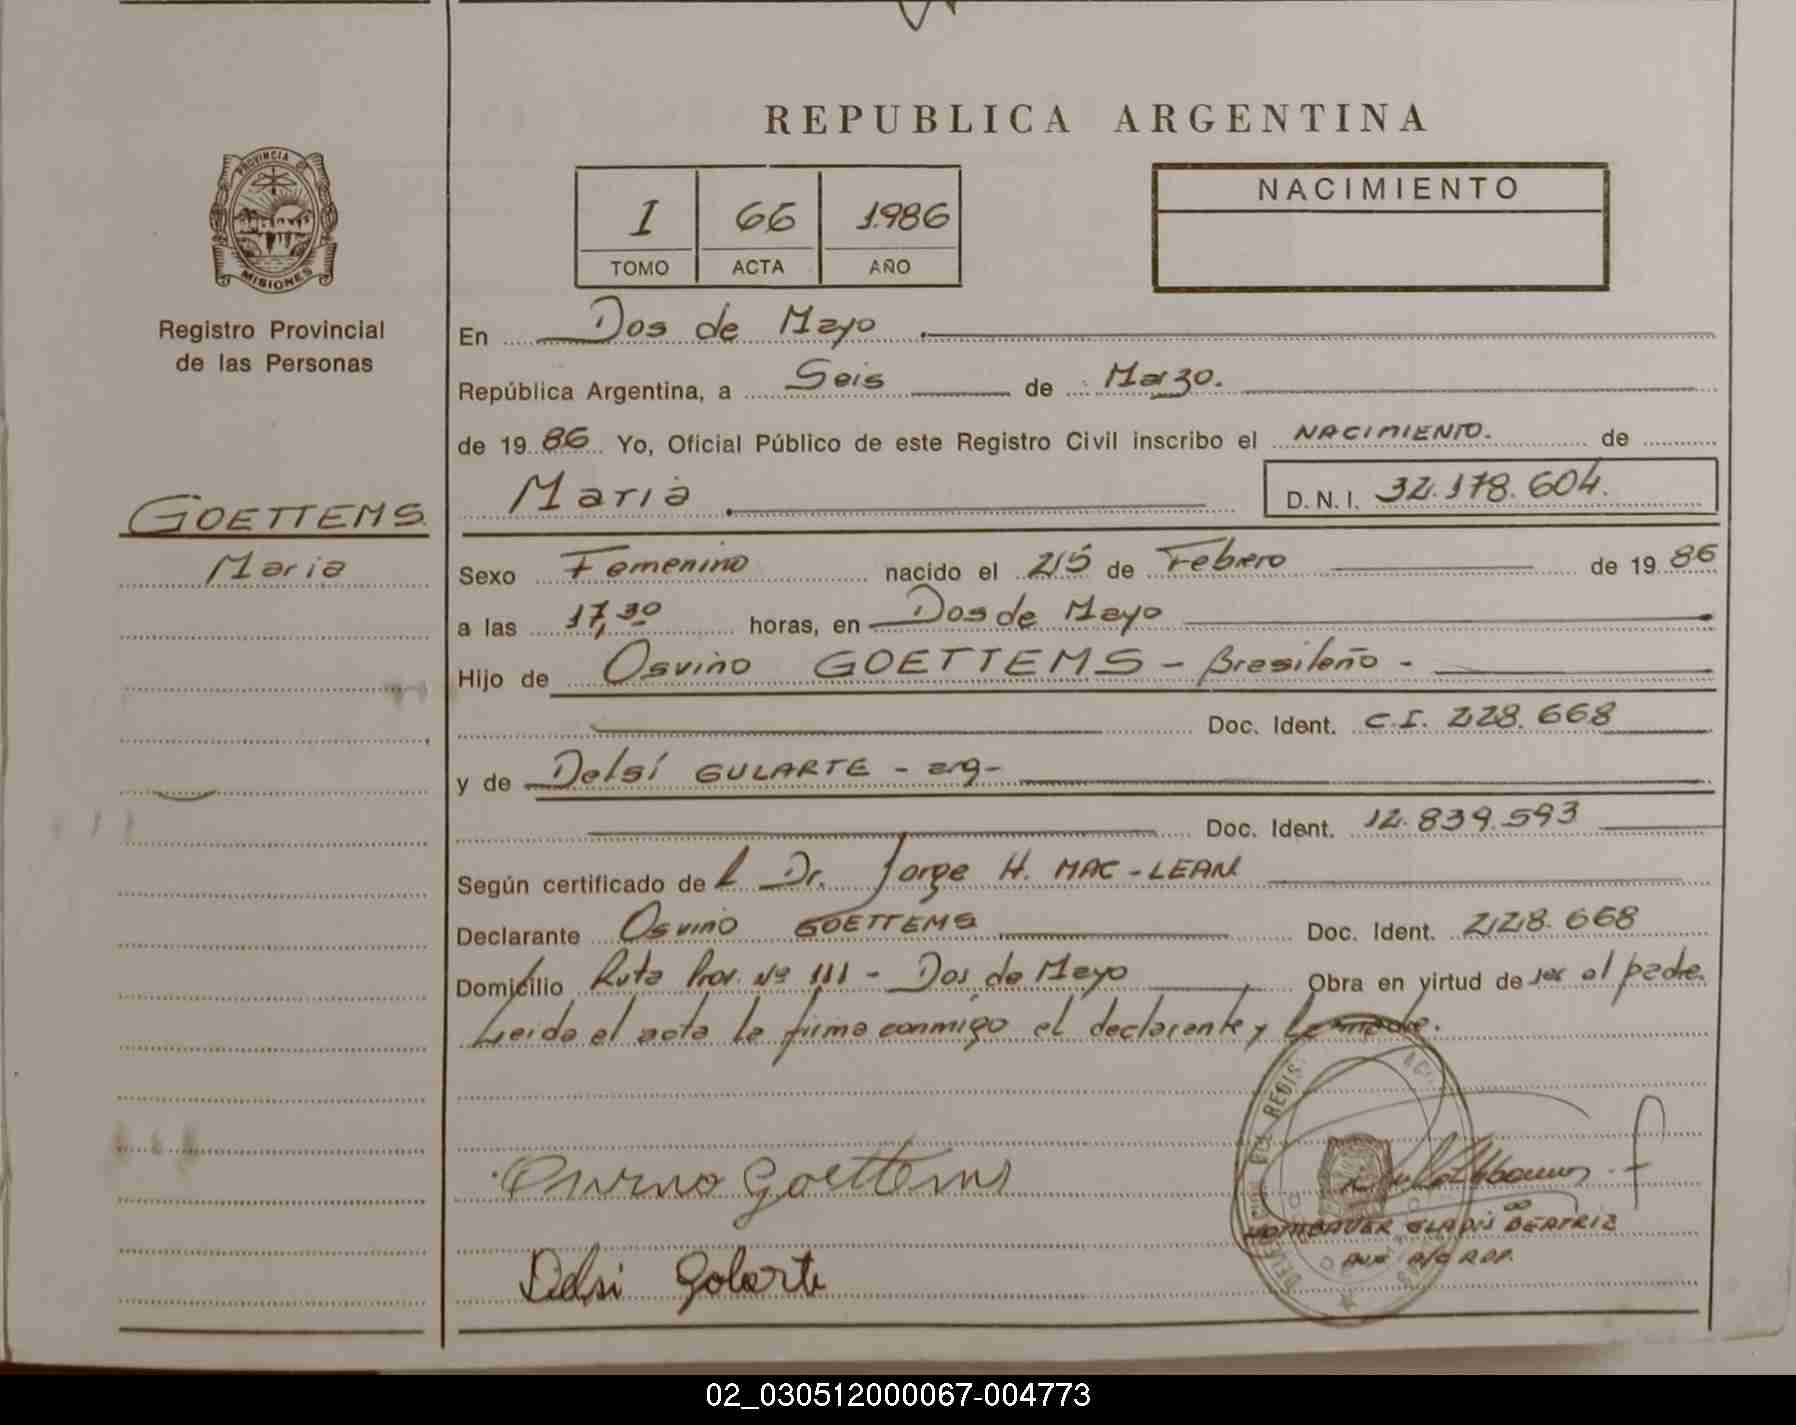 REPUBLICA ARGENTINA
PROVINCIA DE
MISIONES
Registro Provincial
de las Personas
I 66 1986
TOMO ACTA AÑO
NACIMIENTO
En Dos de Mayo
República Argentina, a Seis de Marzo.
de 1986 Yo, Oficial Público de este Registro Civil inscribo el NACIMIENTO. de
Maria D.N.I. 32.178.604.
GOETTEMS
Maria
Sexo Femenino nacido el 25 de Febrero de 1986
a las 17,30 horas, en Dos de Mayo
Hijo de Osvino GOETTEMS - Brasileño -
Doc. Ident. C.I. 228.668
y de Delsi GULARTE - arg-
Doc. Ident. 12.839.593
Según certificado del Dr. Jorge H. MAC-LEAN
Declarante Osvino GOETTEMS Doc. Ident. 228.668
Domicilio Ruta Prov. Nº 111 - Dos de Mayo Obra en virtud de ser el padre.
Leida el acta la firma conmigo el declarante y la madre.
Osvino Goettems
Delsi Golarte
GLADIS BEATRIZ
02_030512000067-004773